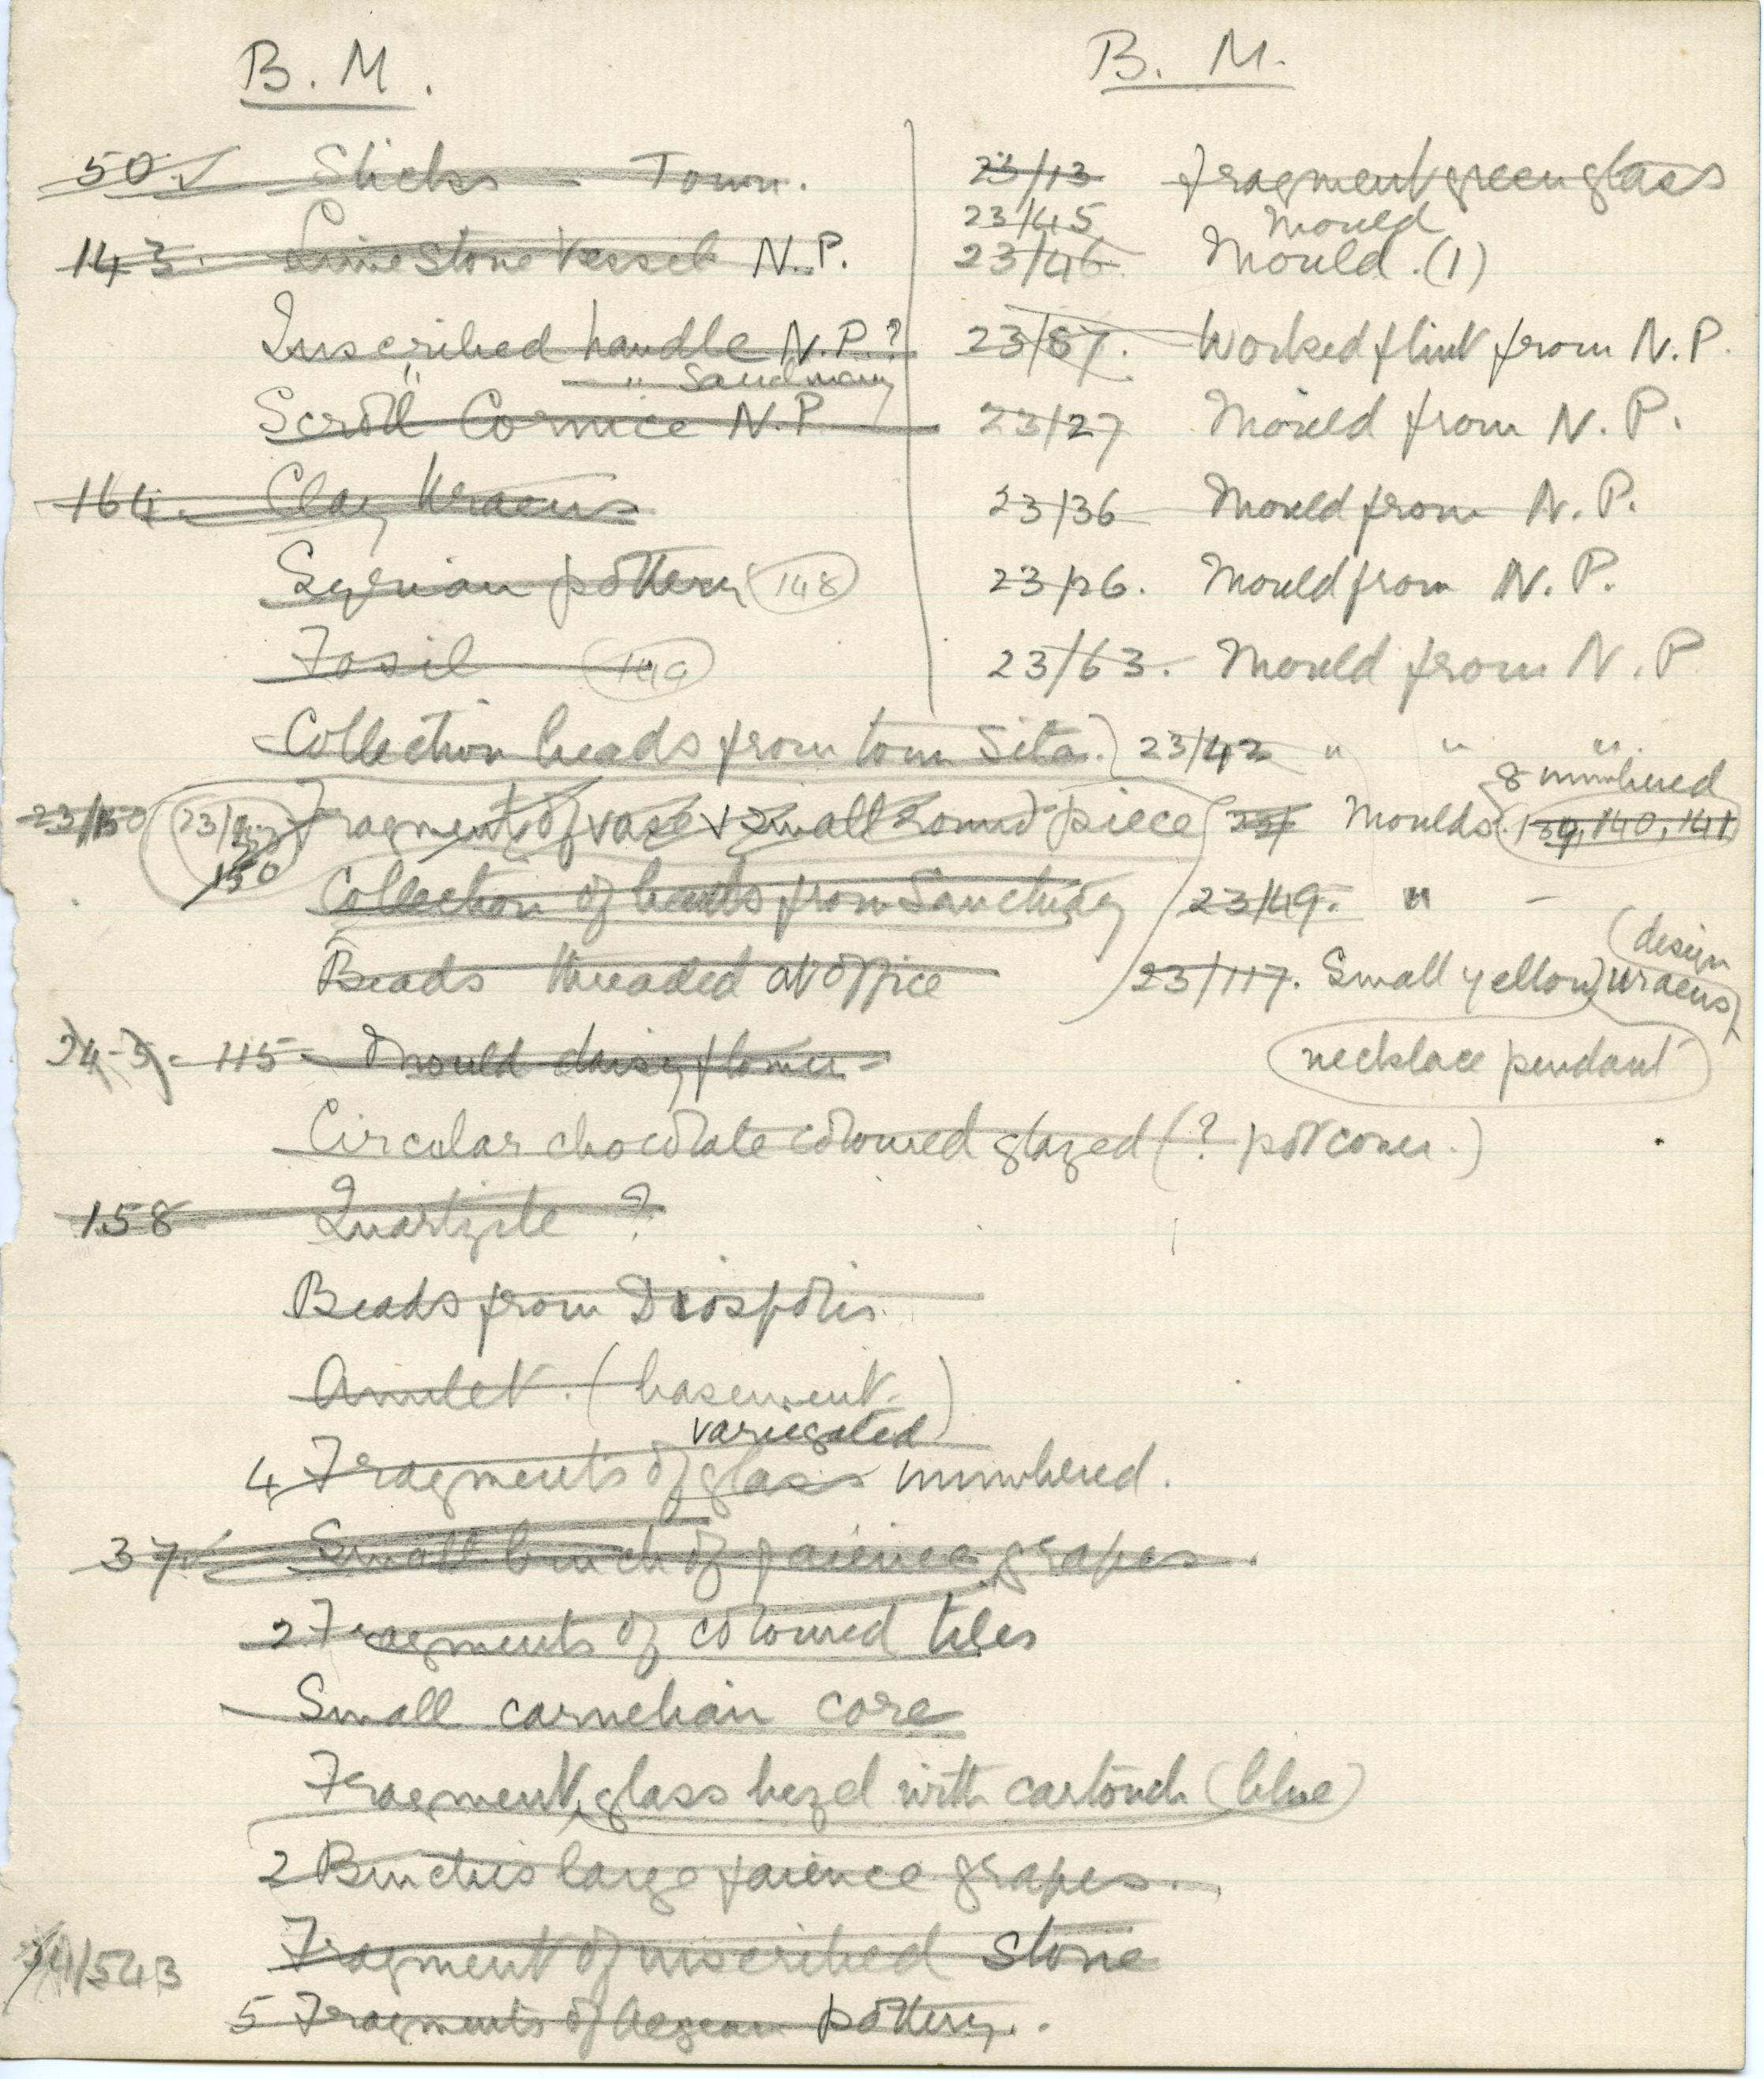 B. M.
50. Sticks - Town.
143. Limestone Vessel N.P.
Inscribed handle N.P.?
" " Sanctuary
Scroll Cornice N.P.
164. Clay Uraeus
Syrian pottery (148)
Fosil (149)
Collection beads from town Site.
23/150 Fragment of vase & small round piece
150
Collection of beads from Sanctuary
Beads threaded at office
115 Mould daisy flower
Circular chocolate coloured glazed (? pot cover.)
158 Quartzite ?
Beads from Diospolis.
Amulet. (basement.)
4 Fragments of variegated glass numbered.
37. Small bunch of faience grapes.
2 Fragments of coloured tiles
Small carnelian core
Fragment, glass bezel with cartouch (blue)
2 Bunches large faience grapes.
/543 Fragment of inscribed stone
5 Fragments of Aegean pottery.
B. M.
23/13 fragment green glass
23/45 Mould
23/46 Mould. (1)
23/87. Worked flint from N.P.
23/27 Mould from N.P.
23/36 Mould from N.P.
23/26. Mould from N.P.
23/63. Mould from N.P
23/42 " " "
8 numbered
Moulds. (139, 140, 141)
23/49. " -
23/117. Small yellow uraeus (design
necklace pendant